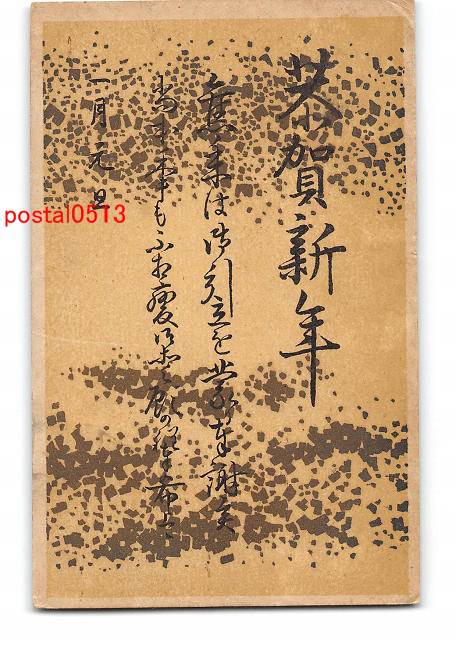 恭賀新年
舊来は御引立を蒙奉謝矣
尚本年も不相変御愛顧の程奉希上候
一月元旦
postal0513